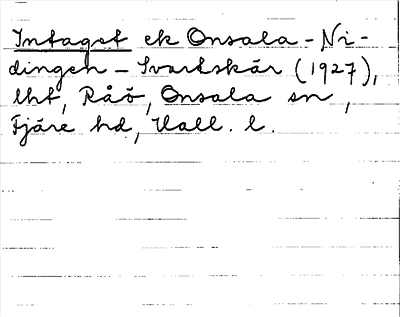 Intaget ek Onsala - Ni-
dingen - Svartskär (1927),
lht, Råö, Onsala sn,
Fjäre hd, Hall. l.